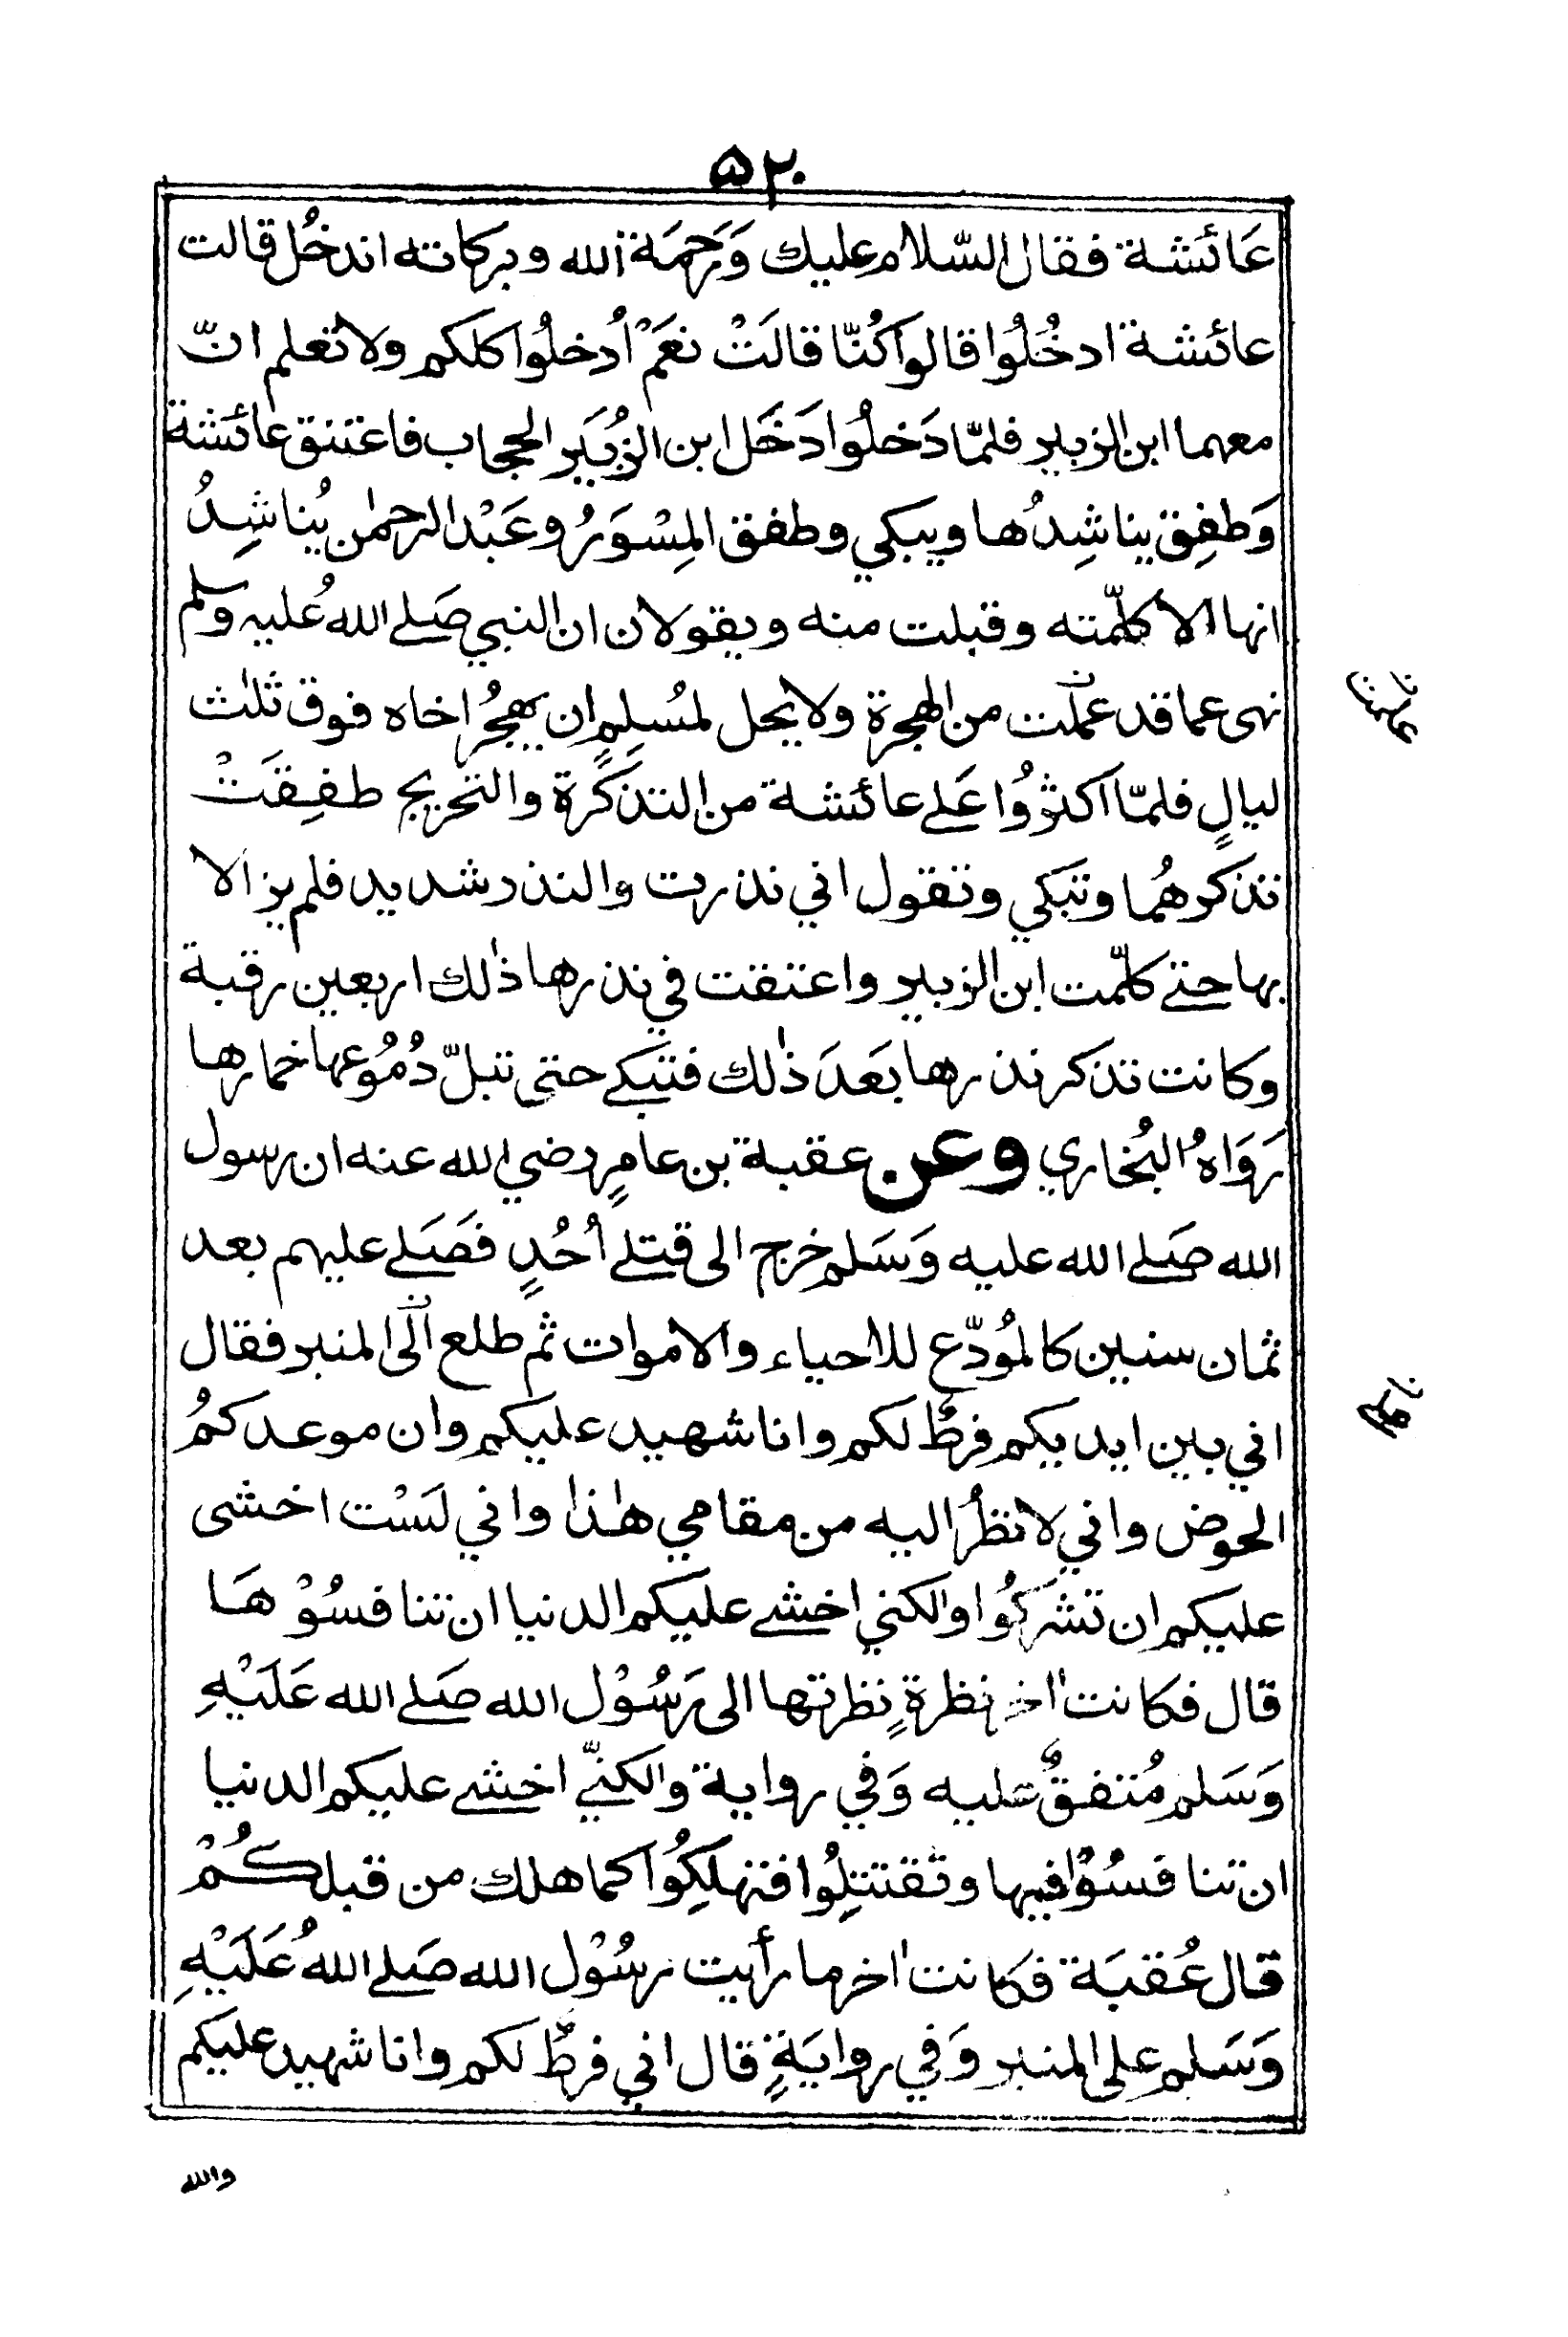 ۵۲۰
عَائشة فقال السّلام عليك وَرَحمَة الله وبركاته اندخُل قالت
عائشة ادخُلُوا قالوا كُنّا قالَتْ نعَمْ اُدخلُوا كلكم ولا تعلم انّ
معهما ابن الزبير فلمّا دَخلُوا دَخَل ابن الزُبَير الحجاب فاعتنق عائشة
وَطفِق يناشِدُها ويبكي وطفق المِسْوَرُ وعَبْد الرحمٰن يُناشِدُ
انها الا كلّمته وقبلت منه ويقولان ان النبي صَلے اللهُ عليه وسلم
نهى عما قد عملت من الهجرة ولا يحل لمُسلِمٍ ان يهجُر اخاه فوق ثلٰث
ليالٍ فلمّا اكثرُوا عَلے عائشة من التذكَرة والتحريج طفِقَتْ
تذكرهُما وتبكي وتقول اني نذرت والنذر شديد فلم يزالا
بها حتے كلّمت ابن الزبير واعتقت في نذرها ذٰلك اربعين رقبة
وكانت تذكر نذرها بَعدَ ذٰلك فتبكے حتى تبلّ دُمُوعها خمارها
رَوَاهُ البُخاري وعن عقبة بن عامرٍ رضي الله عنه ان رسول
الله صَلے الله عليه وَسَلم خرج الى قتلے اُحُدٍ فصَلے عليهم بعد
ثمان سنين كالمُودّع للاحياء والاموات ثم طلع الى المنبر فقال
اني بين ايديكم فرطٌ لكم وانا شهيد عليكم وان موعدكمُ
الحوض واني لانظُر اليه من مقامي هٰذا واني لسْت اخشى
عليكم ان تشركُوا ولكني اخشے عليكم الدنيا ان تنافسُوْهَا
قال فكانت اٰخر نظرةٍ نظرتها الى رَسُوْل الله صَلے الله عَلَيْهِ
وَسَلم مُتفقٌ عليه وَفي رواية ولكنّي اخشے عليكم الدنيا
ان تنافسُوْا فيها وتقتتلِوُا فتهلكِوُا كما هلك من قبلكُمْ
قال عُقبَة فكانت اٰخر ما رأيت رسُوْل الله صَلے اللهُ عَلَيْهِ
وَسَلم على المنبر وَفي روايَةٍ قال اني فرطٌ لكم وانا شهيد عليكم
والله